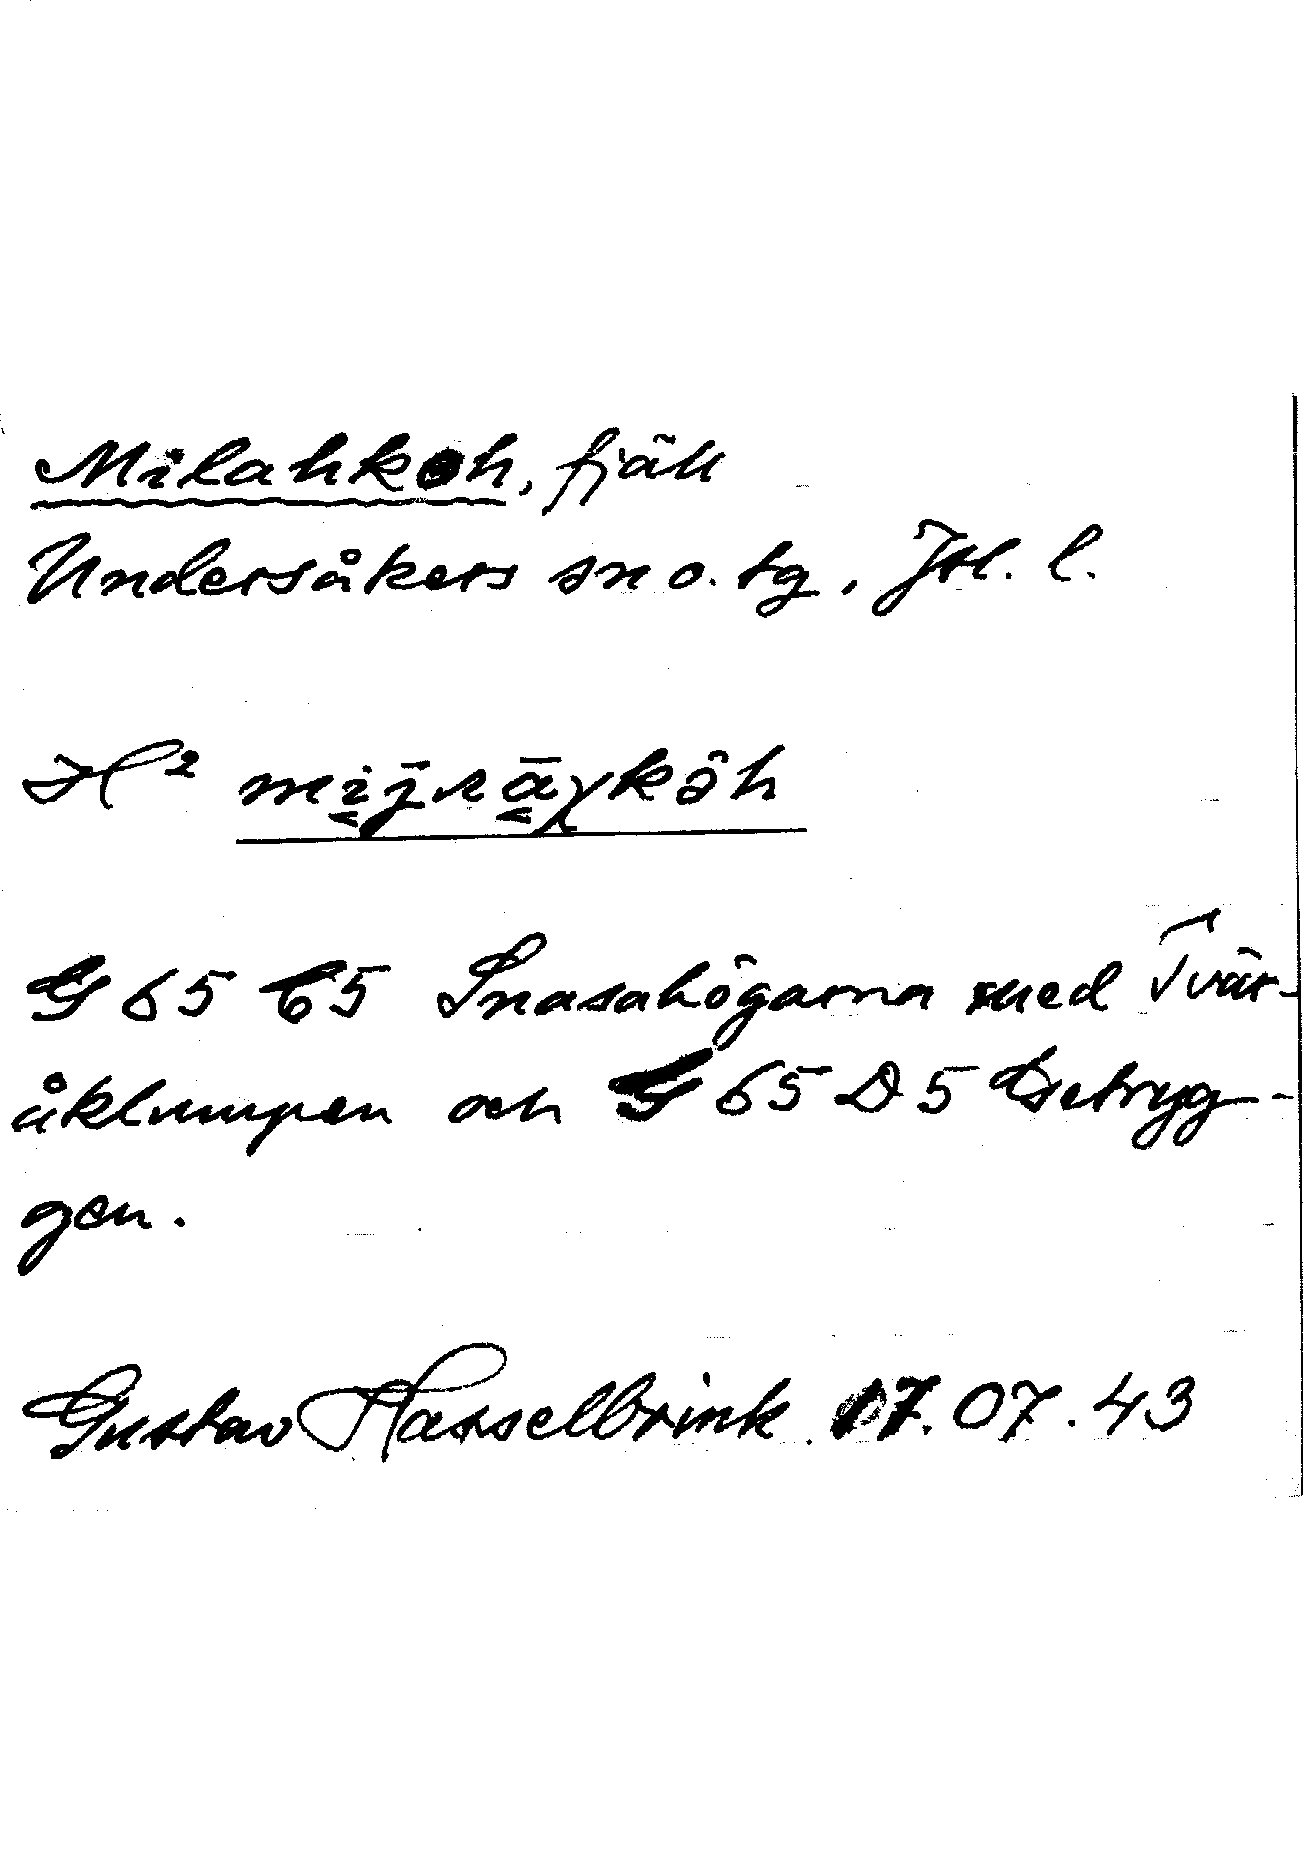 Milahkoh, fjäll
Undersåkers sn o. tg, Jtl. l.
H²
G 65 C5 Snasahögarna med Tvär-
åklumpen och G 65 D5 Getryg-
gen.
Gustav Hasselbrink. 17.07.43